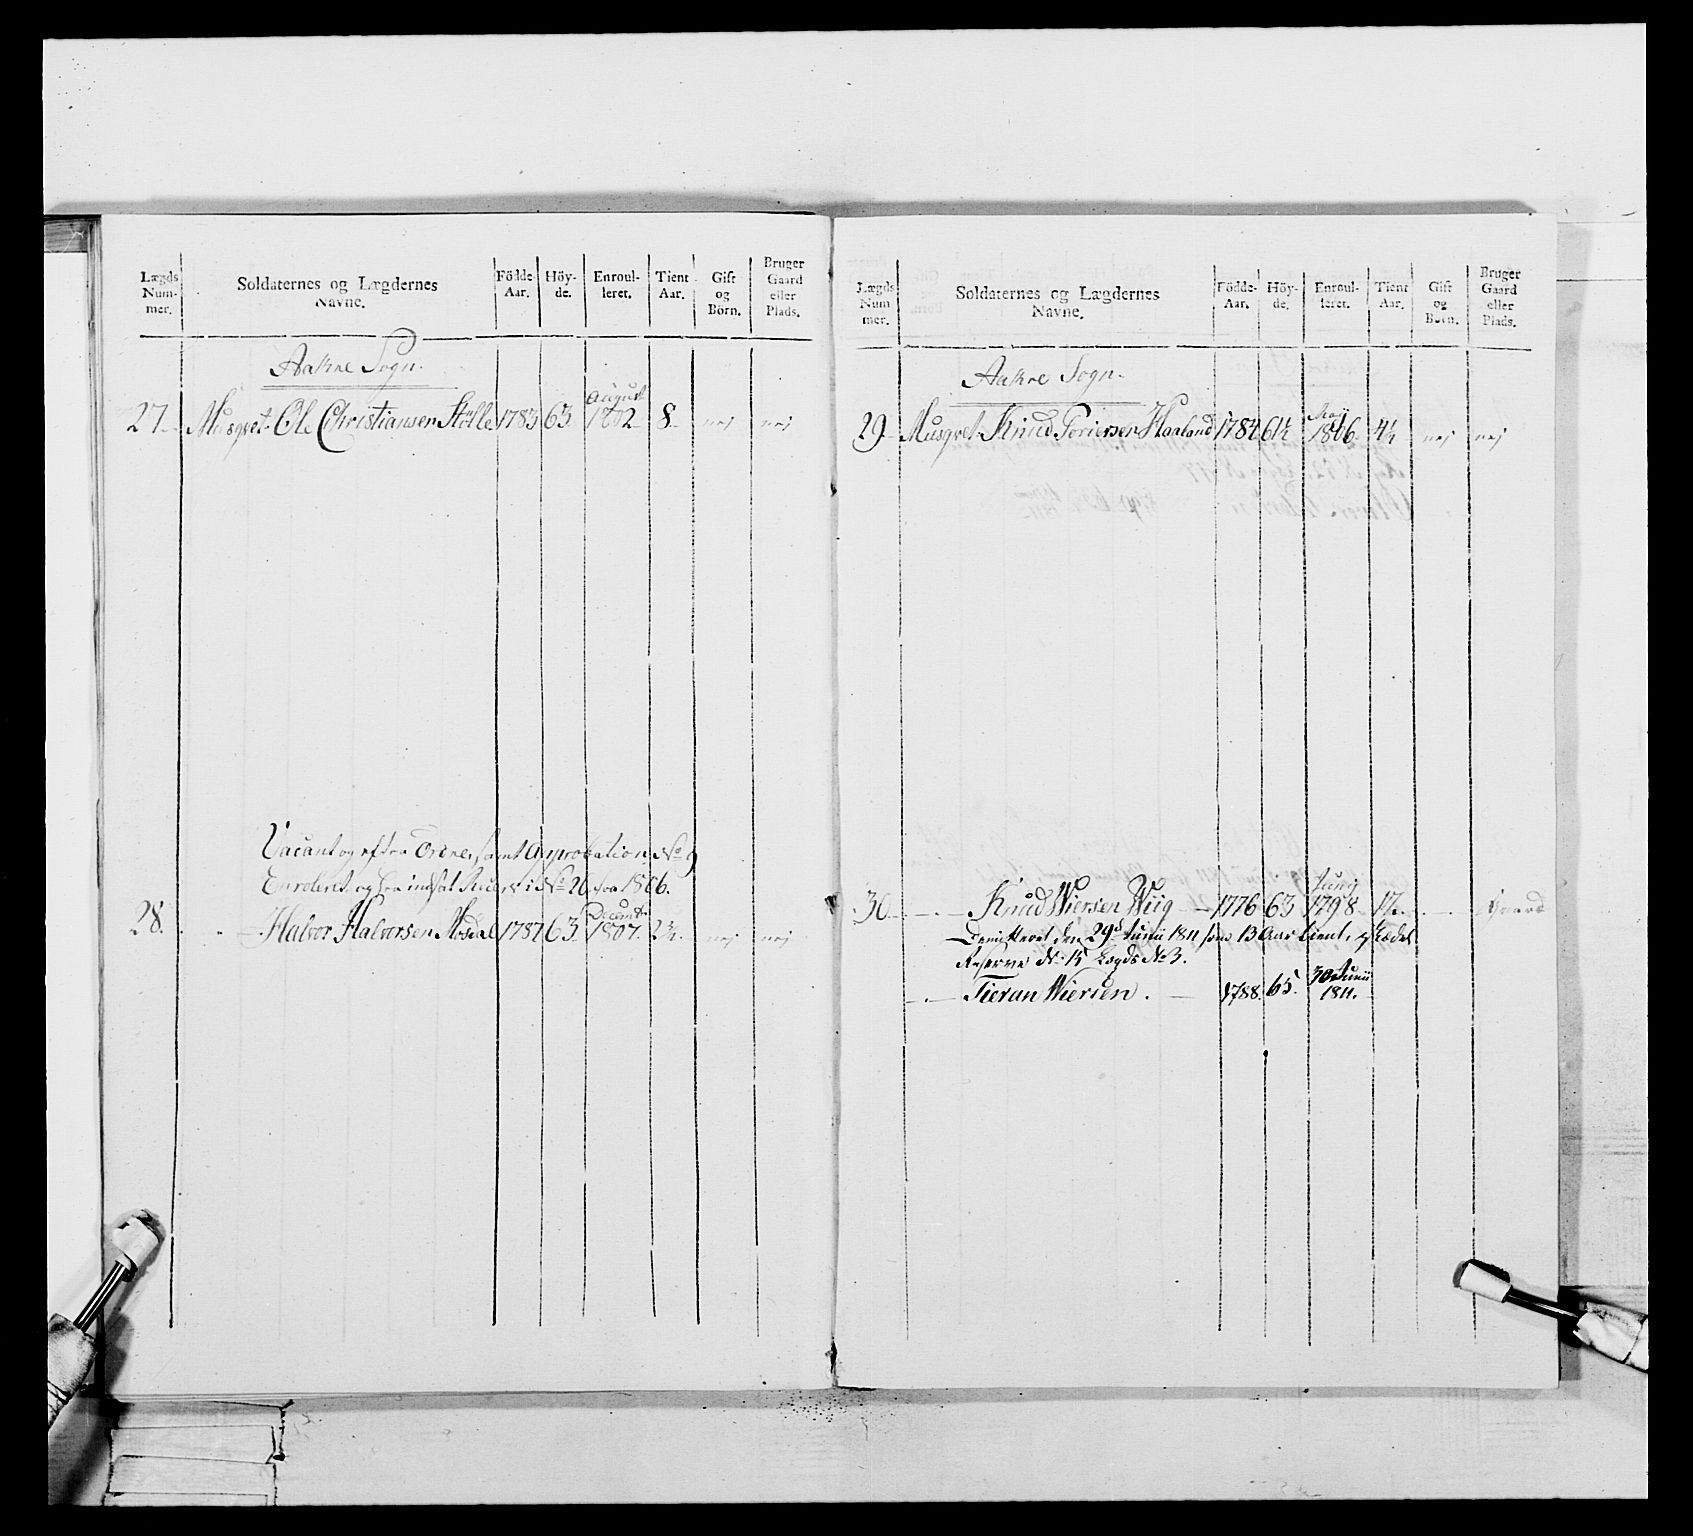 Lægds Num- mer. Soldaternes og Lægdernes Navne. Födde- Aar. Höy- de. Enroul- leret. Tient Aar. Gift og Börn. Bruger Gaard eller Plads.
Aakre Sogn.
27. Musqvet Ole Christiansen Stölle 1783 63 August 1802 8 nej nej
Vacant og efter Ordre, samt Approbation No 9
Enrolleret og i No 26 fra 1806.
28. Halvor Halvorsen Mosdal 1787 63 Decembr 1807. 2½. nej nej
Lægds Num mer. Soldaternes og Lægdernes Navne. Födde- Aar. Höy- de. Enroul- leret. Tient Aar. Gift og Börn. Bruger Gaard eller Plads.
Aakre Sogn.
29 Musqvet Knud Haaland 1784 61½ Maii 1806 4½ nej nej
30 Knud Wiersen Wiig 1776 63 Junij 1798 12 Gaard
Demitteret den 29d Junii 1811 som 13 Aar tient,
Reserve No 15 Lægds No 3.
Wiersen. 1788. 65. 30 Junii 1811.